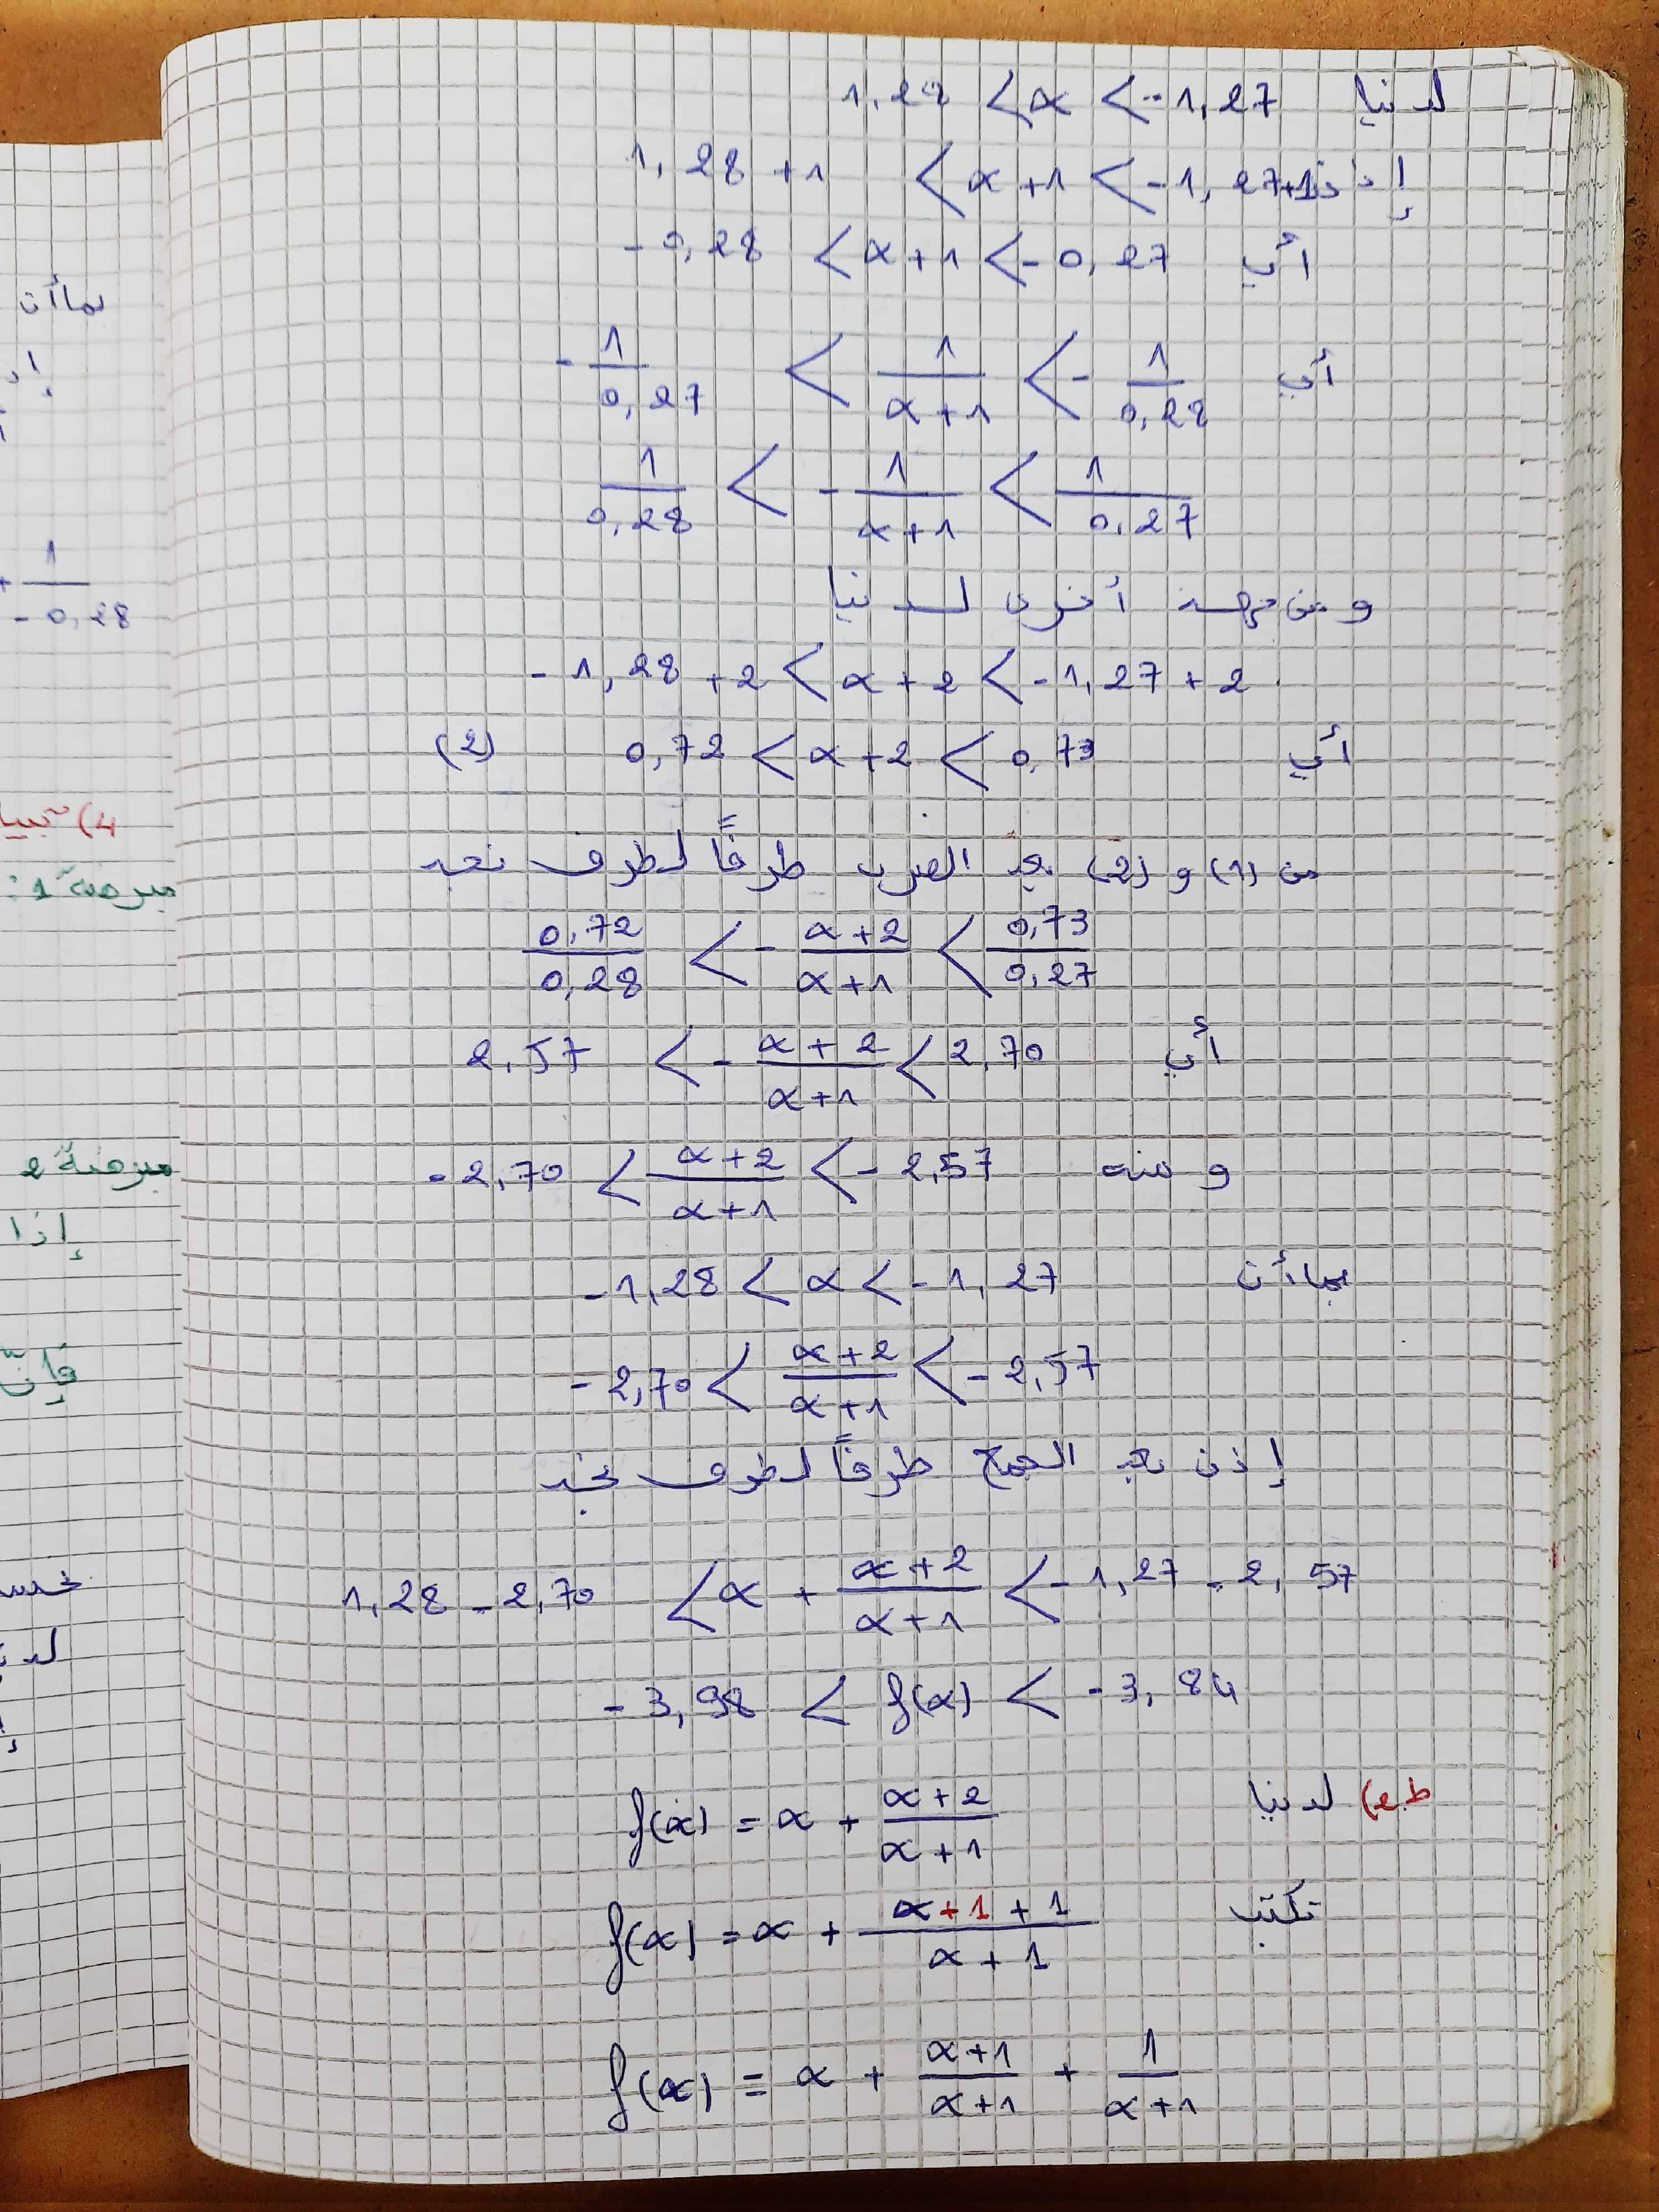 لدينا 1,28 < α < -1,27
إذن 1,28 +1 < α +1 < -1, 27+1
أي -0,28 < α +1 < -0,27
أي -1/0,27 < 1/(α+1) < -1/0,28
1/0,28 < -1/(α+1) < 1/0,27
و من جهة أخرى لدينا
-1,28 +2 < α +2 < -1,27 + 2
أي 0,72 < α +2 < 0,73 (2)
من (1) و (2) بعد الضرب طرفًا لطرف نجد
0,72/0,28 < -(α+2)/(α+1) < 0,73/0,27
أي 2,57 < -(α+2)/(α+1) < 2,70
و منه -2,70 < (α+2)/(α+1) < -2,57
بما أن -1,28 < α < -1,27
-2,70 < (α+2)/(α+1) < -2,57
إذن بعد الجمع طرفًا لطرف نجد
1,28 - 2,70 < α + (α+2)/(α+1) < -1,27 - 2,57
-3,98 < f(α) < -3,84
ط2) لدينا f(α) = α + (α+2)/(α+1)
تكتب f(α) = α + (α+1+1)/(α+1)
f(α) = α + (α+1)/(α+1) + 1/(α+1)
بما أن
1/-0,28
مبرهنة 1:
مبرهنة 2
إذا
فإنّ